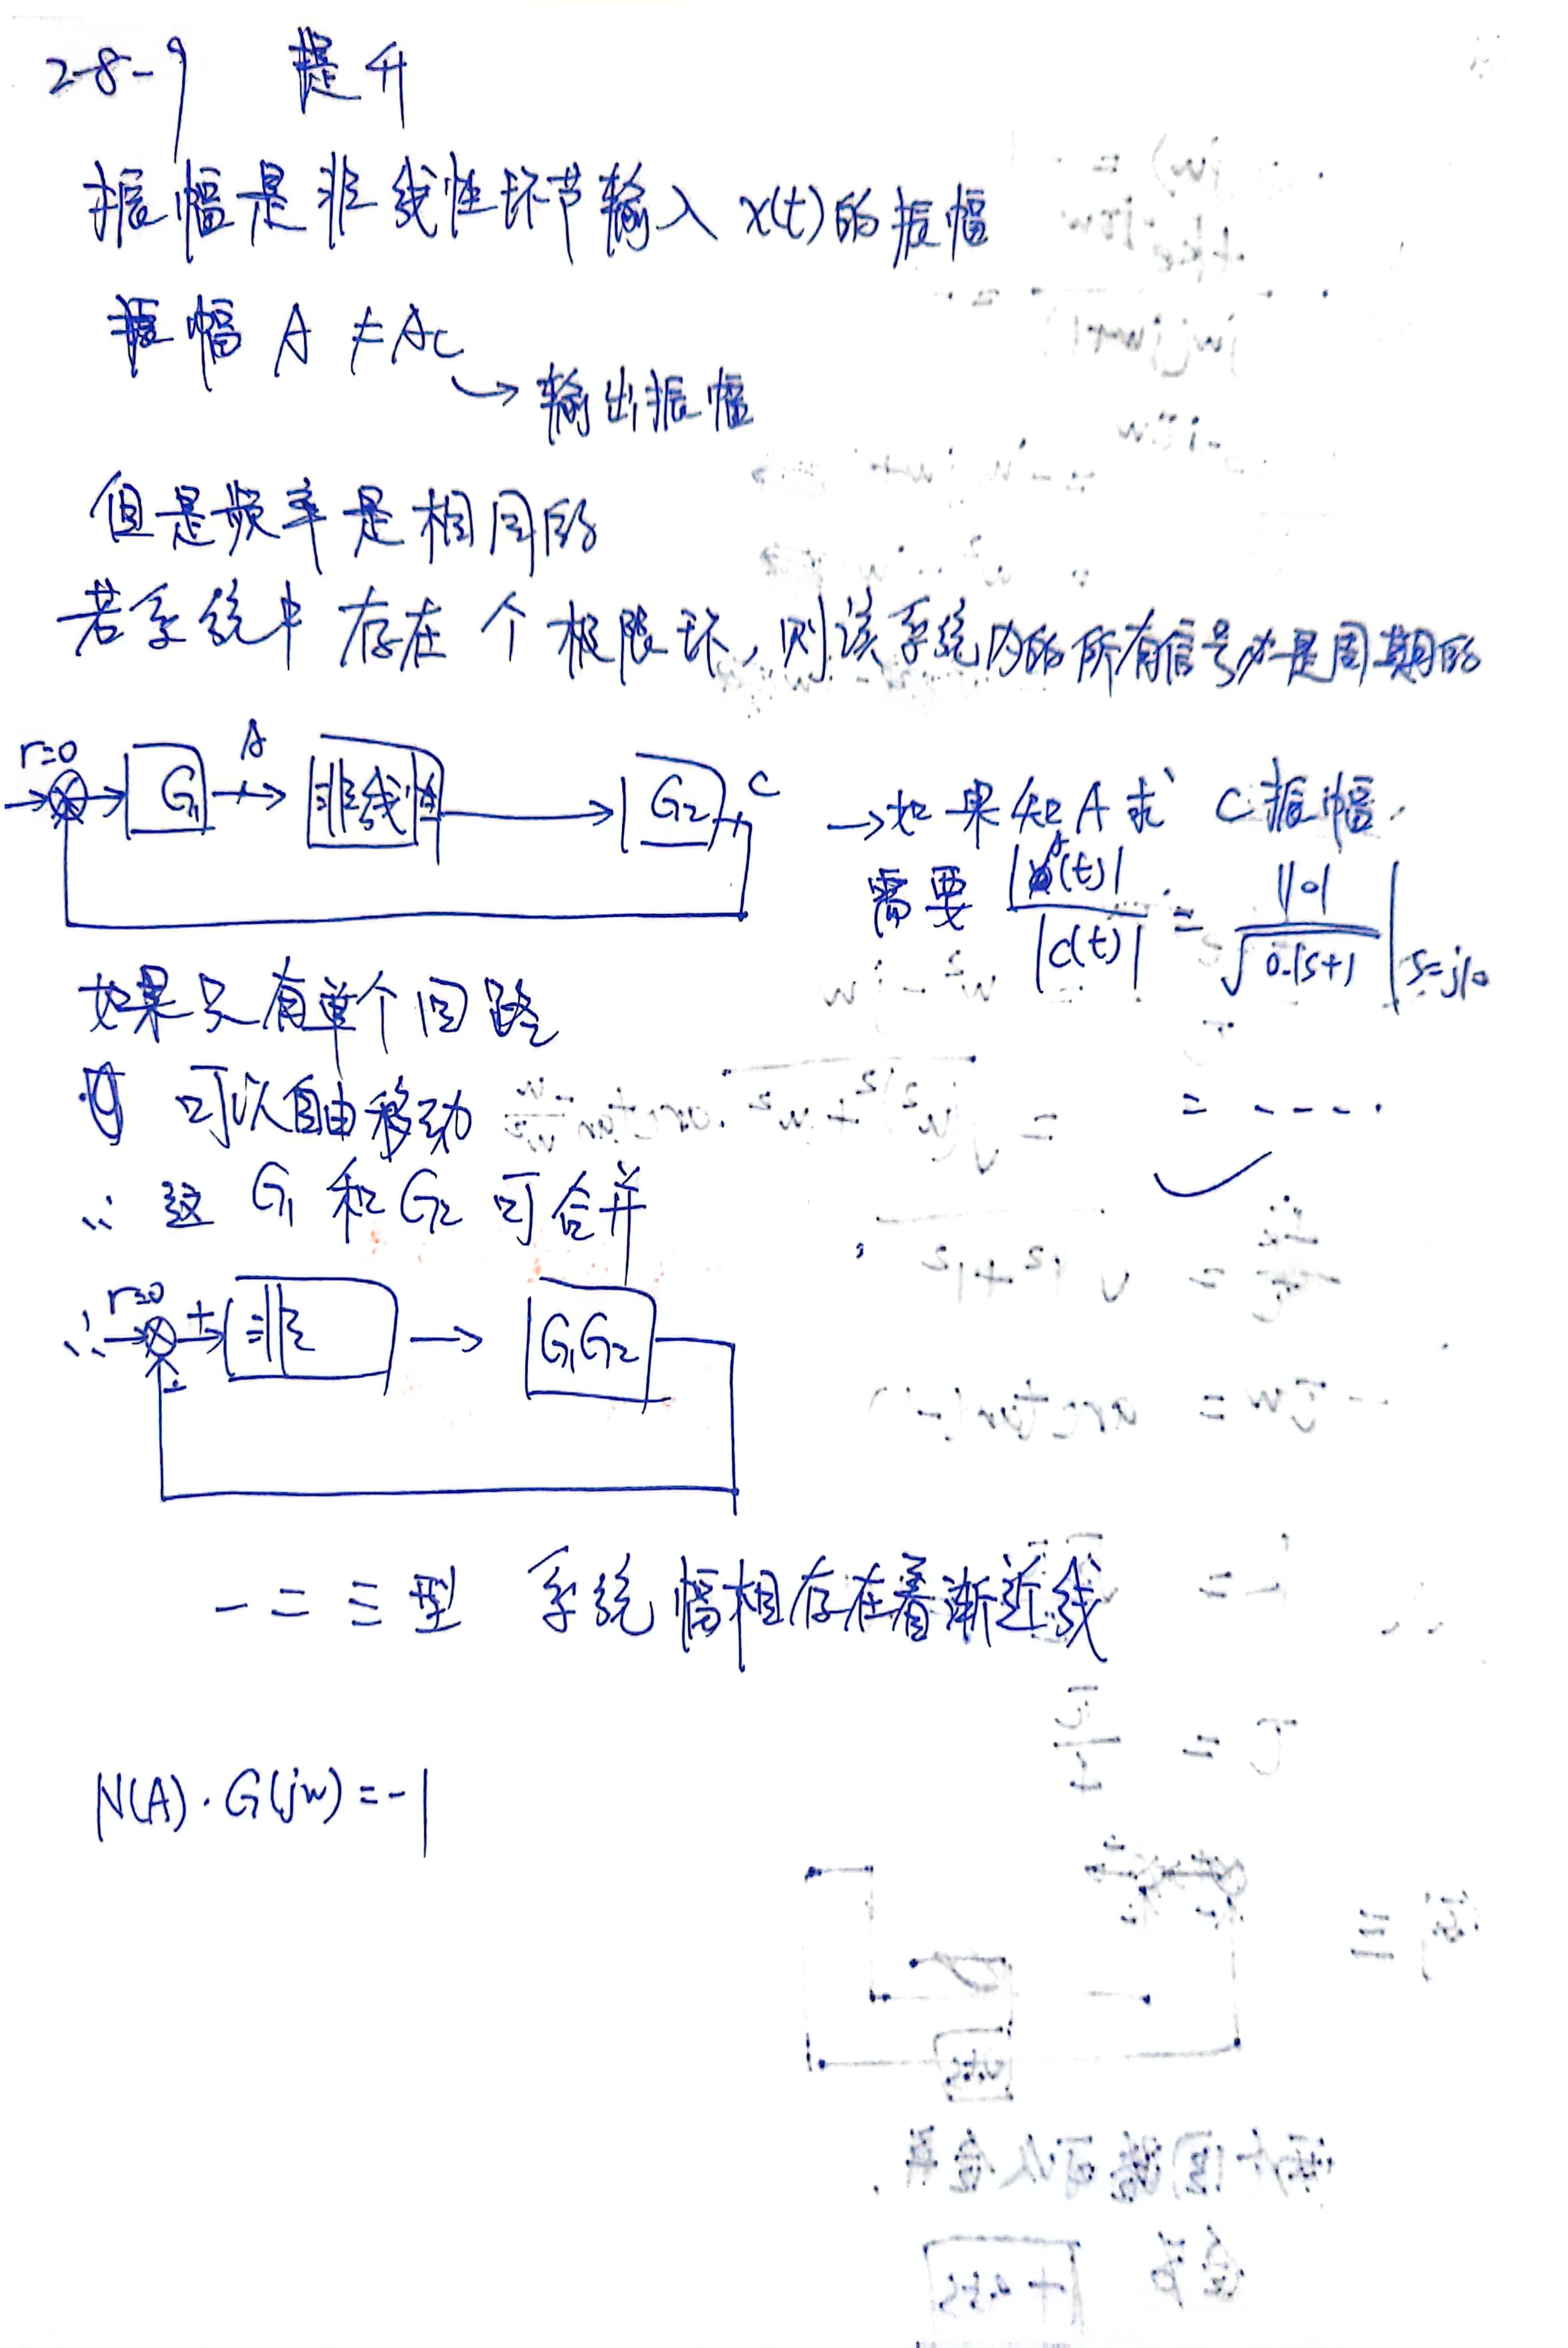 2-8-9 提升
振幅是非线性环节输入 x(t)的振幅
振幅 A ≠ Ac
→ 输出振幅
但是频率是相同的
若系统中 存在 个 极限环, 则该系统内的所有信号必是周期的
r=0 → G₁ A → 非线性 → G₂ C
→如果知A求 C振幅.
需要 |(t)| / |c(t)| = |10| / √0.1s+1 | s=j10
= ----.
如果只有单个回路
可以自由移动
∴ 这 G₁ 和 G₂ 可合并
∴ r=0 → + 非 → G₁G₂
-
一 二 三 型 系统 幅相存在着渐近线
N(A)·G(jw)=-1